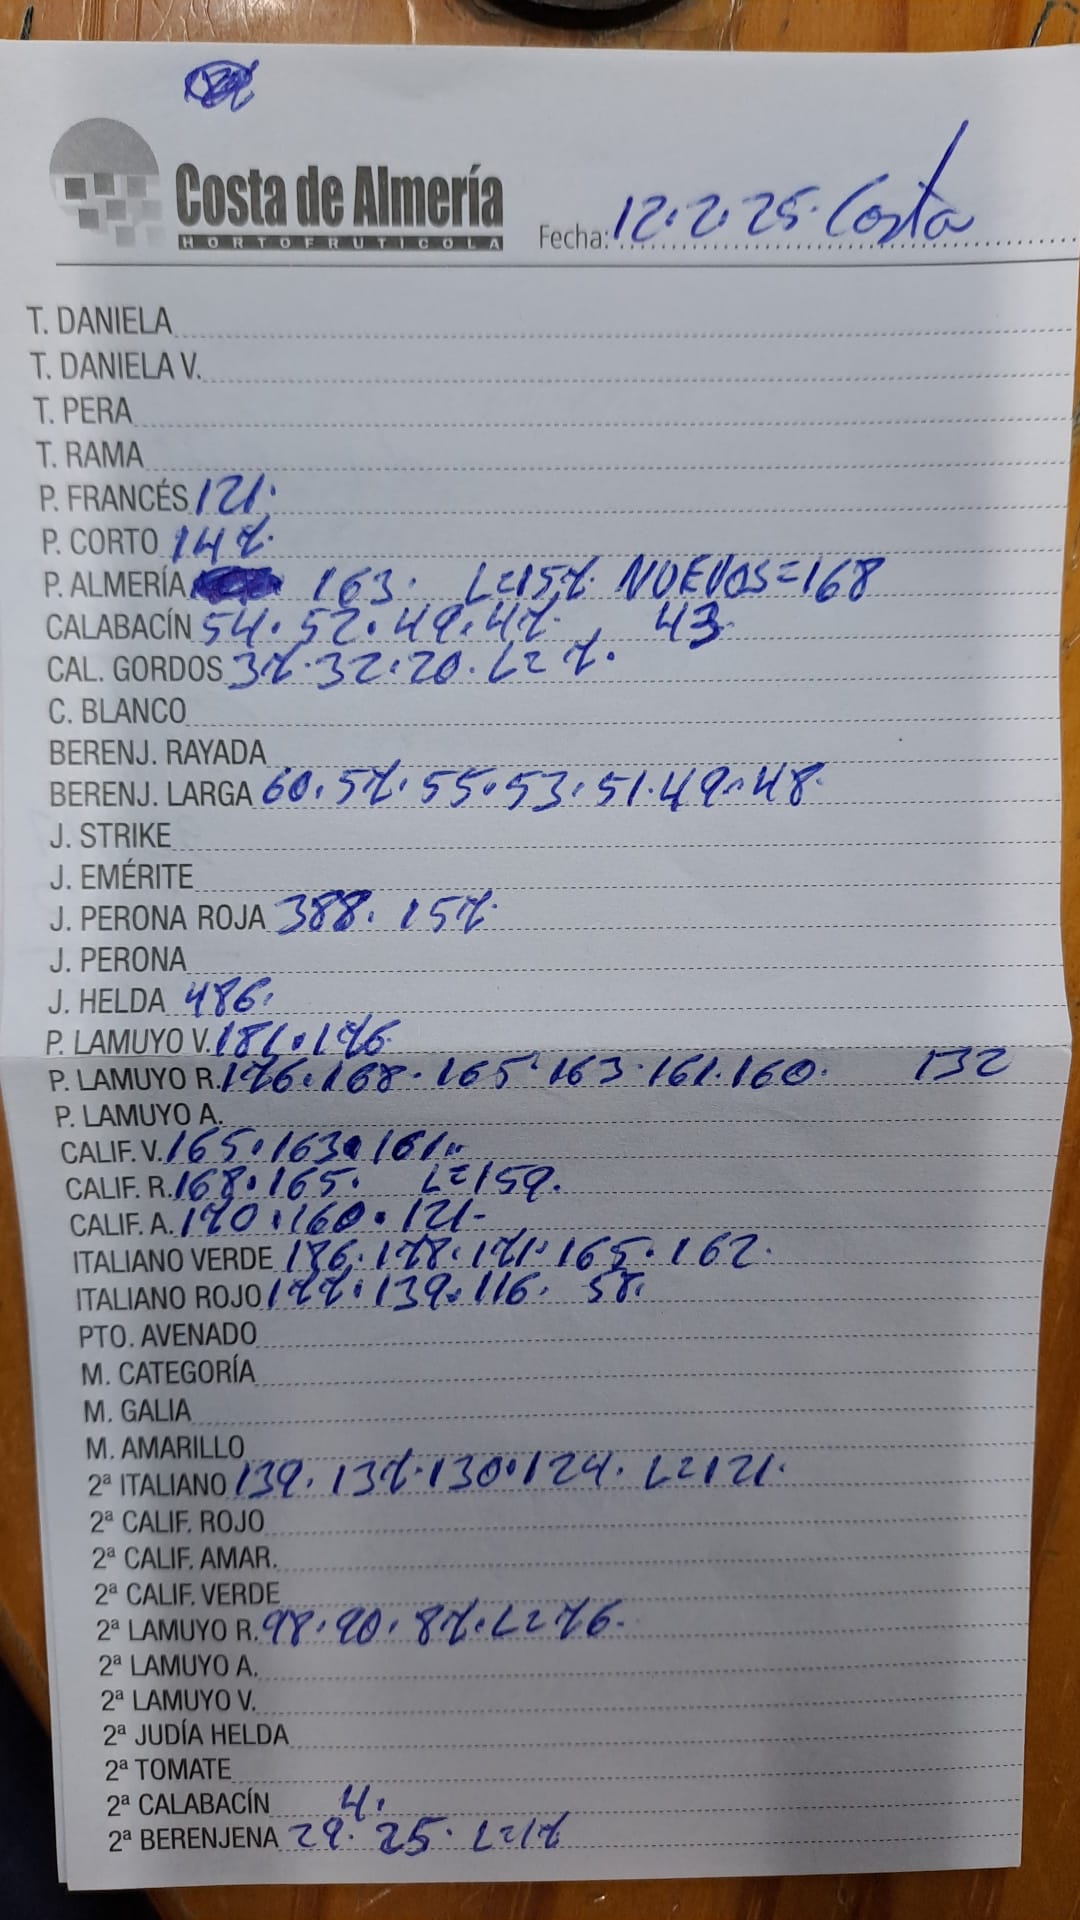 Costa de Almería
HORTOFRUTICOLA
Fecha: 12.2.25. Costa
T. DANIELA
T. DANIELA V.
T. PERA
T. RAMA
P. FRANCÉS 121.
P. CORTO 147.
P. ALMERÍA 163. L=157. NUEVOS=168
CALABACÍN 54. 52. 49. 47. 43.
CAL. GORDOS 37. 32. 20. L=7.
C. BLANCO
BERENJ. RAYADA
BERENJ. LARGA 60. 57. 55. 53. 51. 49. 48.
J. STRIKE
J. EMÉRITE
J. PERONA ROJA 388. 157.
J. PERONA
J. HELDA 486.
P. LAMUYO V. 181. 176.
P. LAMUYO R. 176. 168. 165. 163. 161. 160. 132
P. LAMUYO A.
CALIF. V. 165. 163. 161.
CALIF. R. 168. 165. L=159.
CALIF. A. 170. 160. 121-
ITALIANO VERDE 186. 178. 171. 165. 162.
ITALIANO ROJO 177. 139. 116. 58.
PTO. AVENADO
M. CATEGORÍA
M. GALIA
M. AMARILLO
2ª ITALIANO 139. 137. 130. 124. L=121.
2ª CALIF. ROJO
2ª CALIF. AMAR.
2ª CALIF. VERDE
2ª LAMUYO R. 98. 90. 87. L=76.
2ª LAMUYO A.
2ª LAMUYO V.
2ª JUDÍA HELDA
2ª TOMATE
2ª CALABACÍN 4.
2ª BERENJENA 29. 25. L=17